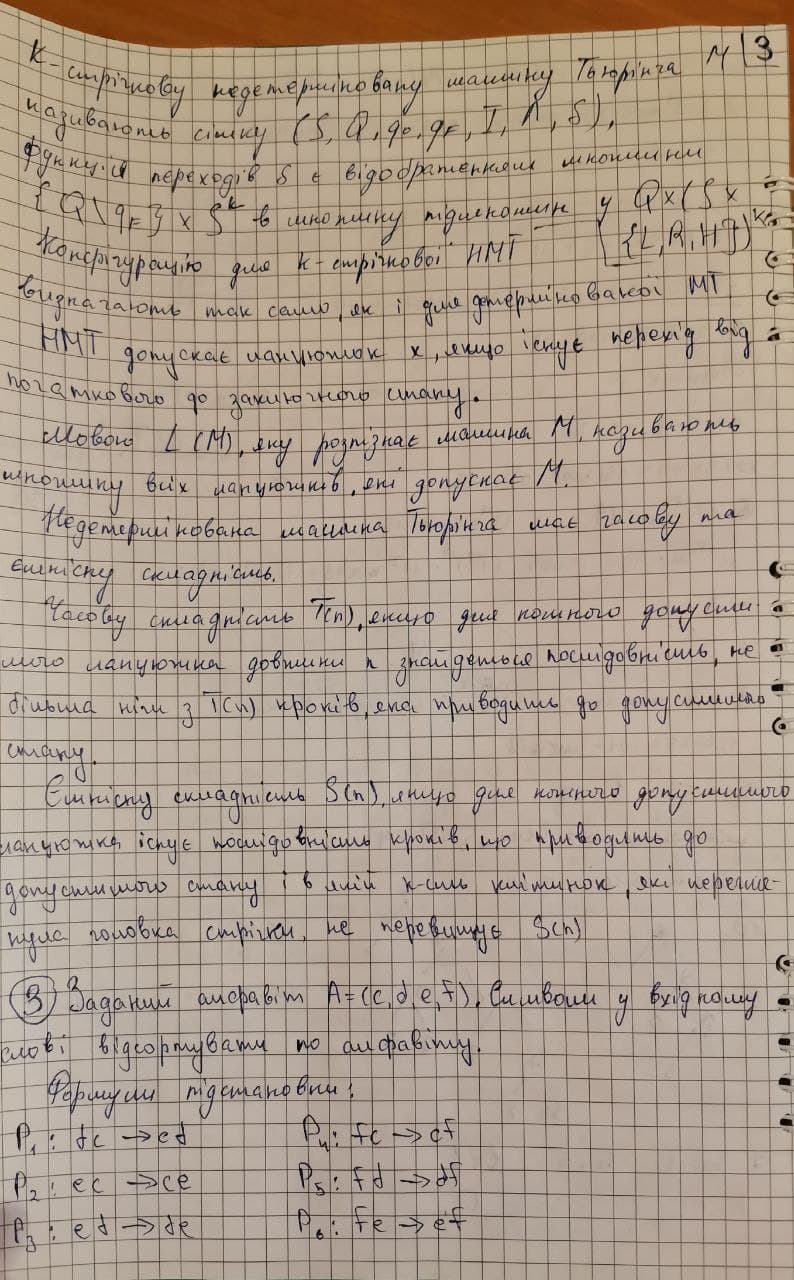 К-стрічкову недетерміновану машину Тьюрінга М |3
називають сімку (S, Q, q0, qF, I, Λ, δ),
функція переходів δ є відображенням множини
{Q\qF} x S^k в множину підмножин у Q x (S x
Конфігурацію для к-стрічкової НМТ {L, R, H})^k
визначають так само, як і для детермінованої МТ
НМТ допускає ланцюжок x, якщо існує перехід від
початкового до заключного стану.
Мовою L(M), яку розпізнає машина М, називають
множину всіх ланцюжків, які допускає М.
Недетермінована машина Тьюрінга має часову та
ємнісну складність.
Часову складність T(n), якщо для кожного допусти-
мого ланцюжка довжини n знайдеться послідовність, не
більша ніж з T(n) кроків, яка приводить до допустимого
стану.
Ємнісну складність S(n), якщо для кожного допустимого
ланцюжка існує послідовність кроків, що приводять до
допустимого стану і в якій к-сть клітинок, які перегля-
нула головка стрічки, не перевищує S(n)
③ Заданий алфавіт A=(c, d, e, f). Символи у вхідному
слові відсортувати по алфавіту.
Формули підстановки:
P1: dc → cd P4: fc → cf
P2: ec → ce P5: fd → df
P3: ed → de P6: fe → ef